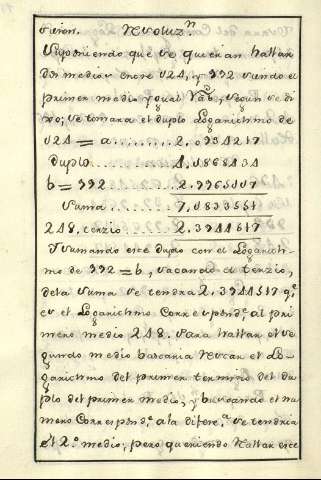 viron. Resoluz.n
Suponiendo que se quieran hallar
dos medios entre 124, y 992 siendo el
primer medio ygual ∛aab, segun se di
xo; se tomara el duplo Logarithmo de
124 = a ......... 2,0934217
duplo ......... 4,1868434
b = 992 ......... 2.9965117
Suma ......... 7,1833551
248, terzio ......... 2.3944517
Y sumando este duplo con el Logarith-
mo de 992 = b, sacando el terzio,
de la suma se tendra 2.3944517 q.e
es el Logarithmo Correspond.e al pri
mero medio 248. Para hallar el se
gundo medio bastaria Restar el Lo-
garithmo del primer termino del du
plo del primer medio; y buscando el nu
mero Correspnd.e a la difere.a se tendria
el 2.º medio; pero queriendo Hallar este